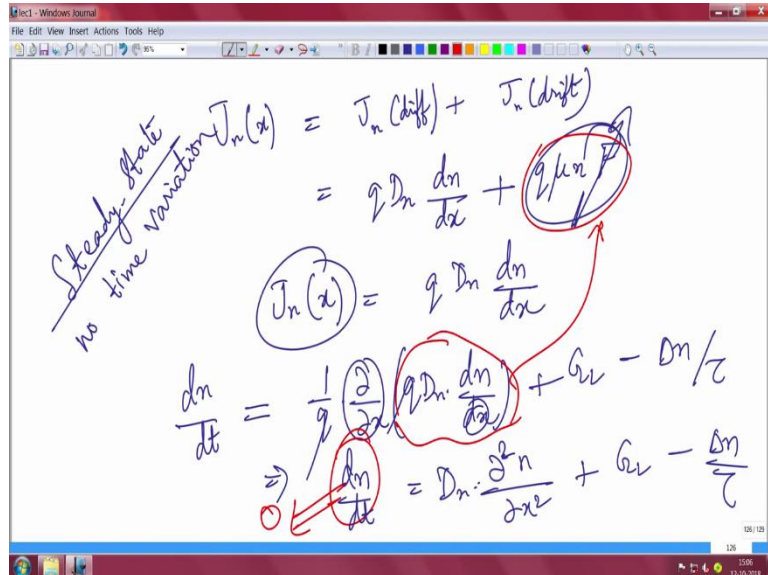 lec1 - Windows Journal
File Edit View Insert Actions Tools Help
95%
Steady-State
no time variation
Jn(x) = Jn(diff) + Jn(drift)
= qDn dn/dx + qμn F
Jn(x) = q Dn dn/dx
dn/dt = 1/q ∂/∂x (qDn. dn/dx) + GL - Dn/τ
⇒ dn/dt = Dn. ∂²n/∂x² + GL - Δn/τ
0
126 / 129
126
15:06
12-10-2018